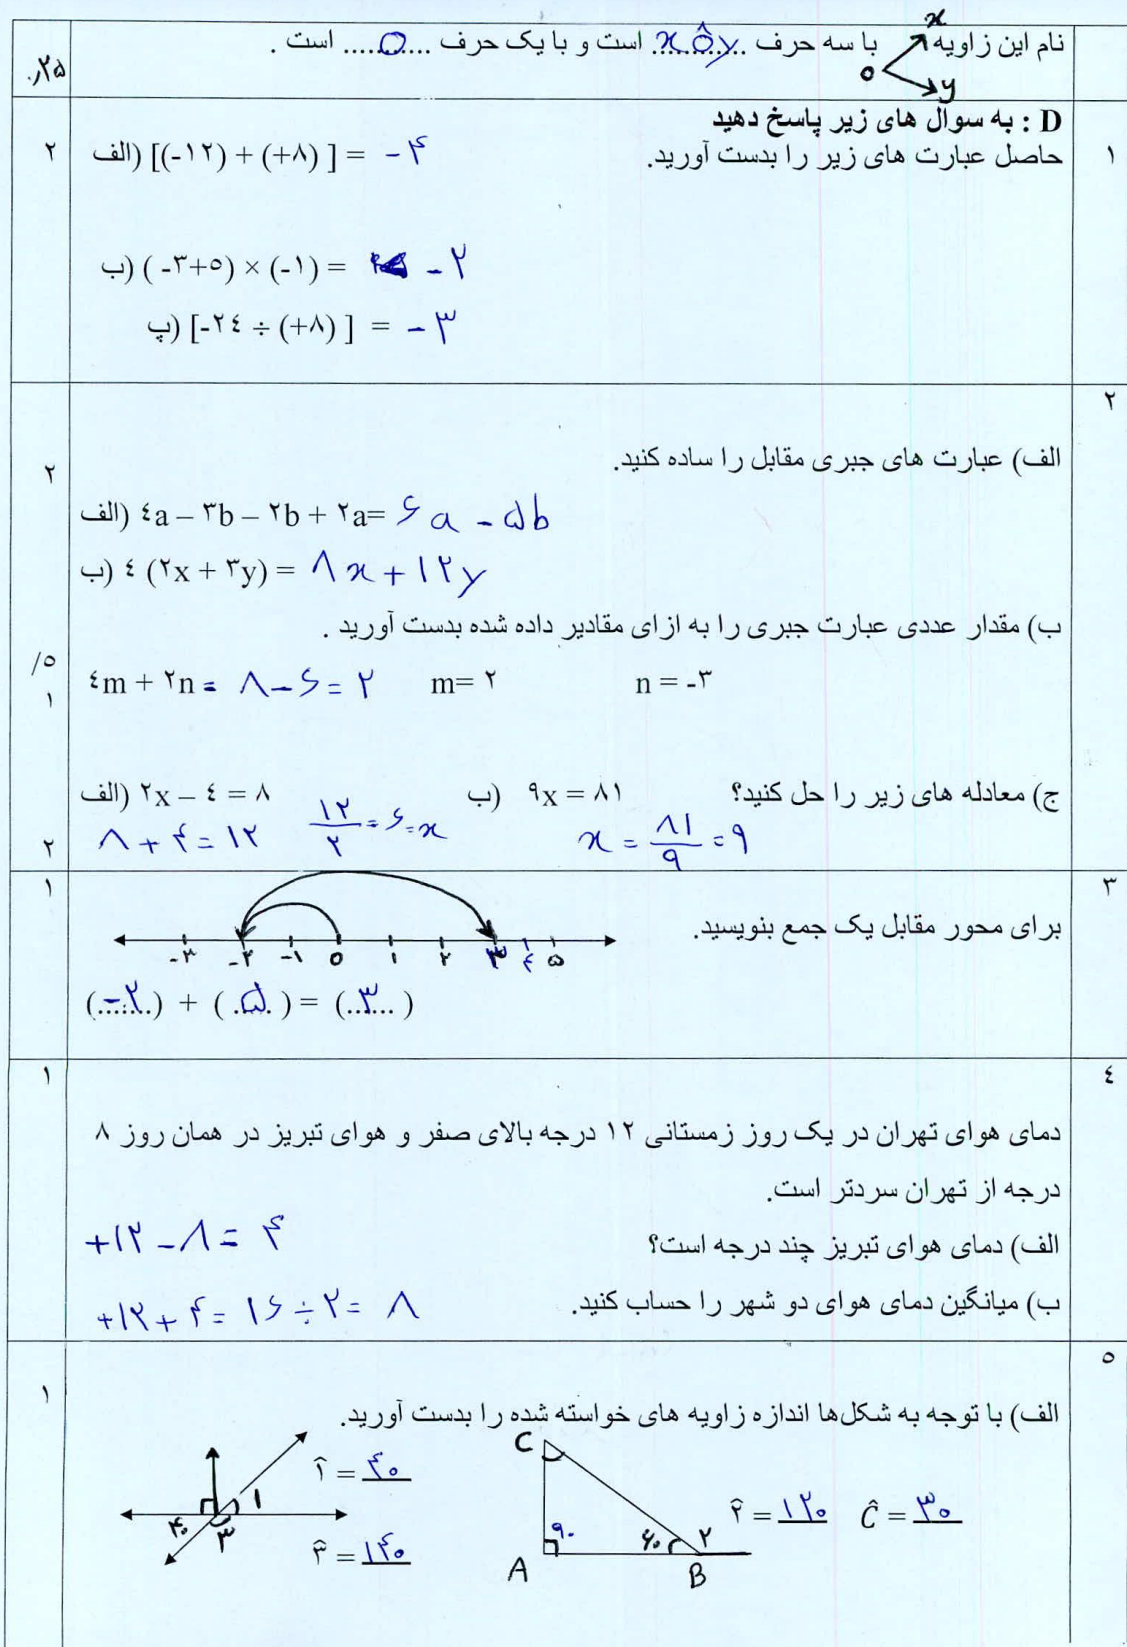 نام این زاویه با سه حرف xôy است و با یک حرف O است .
x
o
y
۰٫۲۵
D : به سوال های زیر پاسخ دهید
۱
حاصل عبارت های زیر را بدست آورید.
الف) [(-۱۲) + (+۸) ] = -۴
۲
ب) ( -۳+۵) × (-۱) = -۲
پ) [-۲٤ ÷ (+۸) ] = -۳
۲
الف) عبارت های جبری مقابل را ساده کنید.
۲
الف) ٤a – ۳b – ۲b + ۲a= ۶a - ۵b
ب) ٤ (۲x + ۳y) = ۸x + ۱۲y
ب) مقدار عددی عبارت جبری را به ازای مقادیر داده شده بدست آورید .
/۵
۱
٤m + ۲n = ۸-۶=۲ m= ۲ n = -۳
ج) معادله های زیر را حل کنید؟
الف) ۲x – ٤ = ۸ ب) ۹x = ۸۱
۸+۴=۱۲ ۱۲/۲ =۶=x x = ۸۱/۹ =۹
۲
۳
۱
برای محور مقابل یک جمع بنویسید.
-۳ -۲ -۱ ۰ ۱ ۲ ۳ ۴ ۵
(..-۲..) + ( .۵. ) = (..۳... )
٤
۱
دمای هوای تهران در یک روز زمستانی ۱۲ درجه بالای صفر و هوای تبریز در همان روز ۸
درجه از تهران سردتر است.
الف) دمای هوای تبریز چند درجه است؟ +۱۲-۸= ۴
ب) میانگین دمای هوای دو شهر را حساب کنید. +۱۲+۴=۱۶÷۲= ۸
۵
۱
الف) با توجه به شکل‌ها اندازه زاویه های خواسته شده را بدست آورید.
۱̂ = ۴۰
۳̂ = ۱۴۰
۴۰ ۱ ۳
C
۹۰ ۶۰ ۲
A B
۲̂ = ۱۲۰ Ĉ = ۳۰